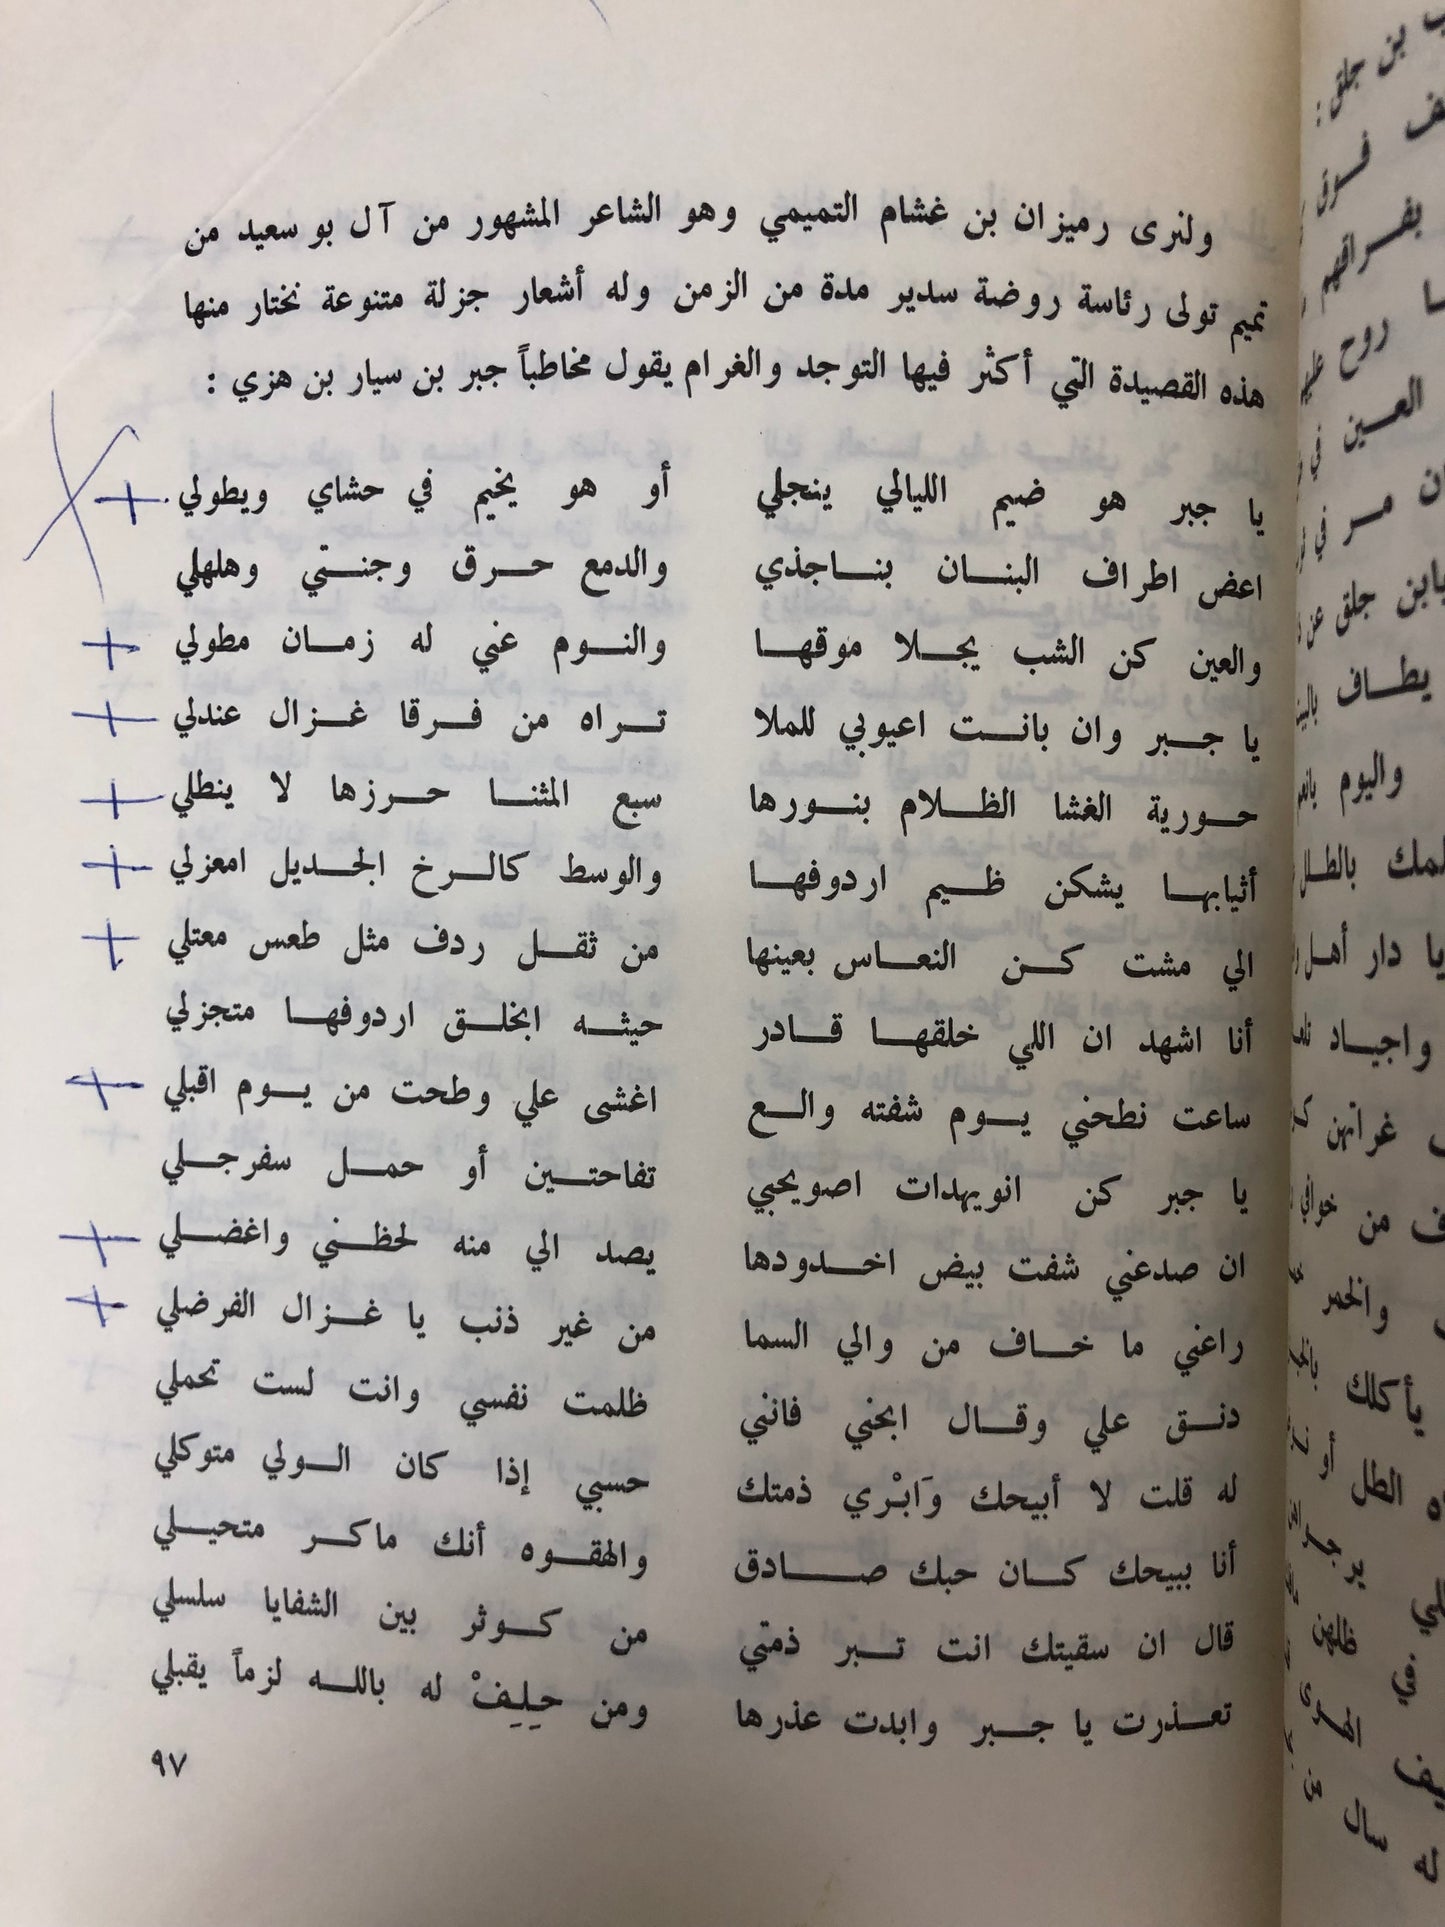 ولنرى رميزان بن غشام التميمي وهو الشاعر المشهور من آل بو سعيد من
تميم تولى رئاسة روضة سدير مدة من الزمن وله أشعار جزلة متنوعة نختار منها
هذه القصيدة التي أكثر فيها التوجد والغرام يقول مخاطباً جبر بن سيار بن هزي :
يا جبر هو ضيم الليالي ينجلي أو هو يخيم في حشاي ويطولي
اعض اطراف البنان بناجذي والدمع حرق وجنتي وهلهلي
والعين كن الشب يجلا موقها والنوم غني له زمان مطولي
يا جبر وان بانت اعيوبي للملا تراه من فرقا غزال عندلي
حورية الغشا الظلام بنورها سبع المثنا حرزها لا ينطلي
أثيابها يشكن ظيم اردوفها والوسط كالرخ الجديل امعزلي
الي مشت كن النعاس بعينها من ثقل ردف مثل طعس معتلي
أنا اشهد ان اللي خلقها قادر حيثه ابخلق اردوفها متجزلي
ساعت نطحني يوم شفته والع اغشى علي وطحت من يوم اقبلي
يا جبر كن انويهدات اصويحبي تفاحتين أو حمل سفرجلي
ان صدعني شفت بيض اخدودها يصد الي منه لحظني واغضلي
راعني ما خاف من والي السما من غير ذنب يا غزال الفرضلي
دنق علي وقال ابحني فانني ظلمت نفسي وانت لست تحملي
له قلت لا أبيحك وَابْري ذمتك حسبي إذا كان الولي متوكلي
أنا ببيحك كان حبك صادق والهقوه أنك ماكر متحيلي
قال ان سقيتك انت تبر ذمتي من كوثر بين الشفايا سلسلي
تعذرت يا جبر وابدت عذرها ومن حِلِفْ له بالله لزماً يقبلي
٩٧